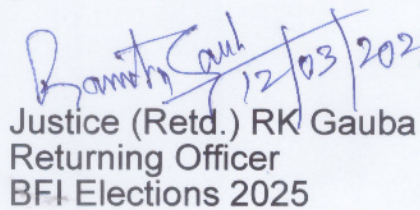 12/03/202
Justice (Retd.) RK Gauba
Returning Officer
BFI Elections 2025